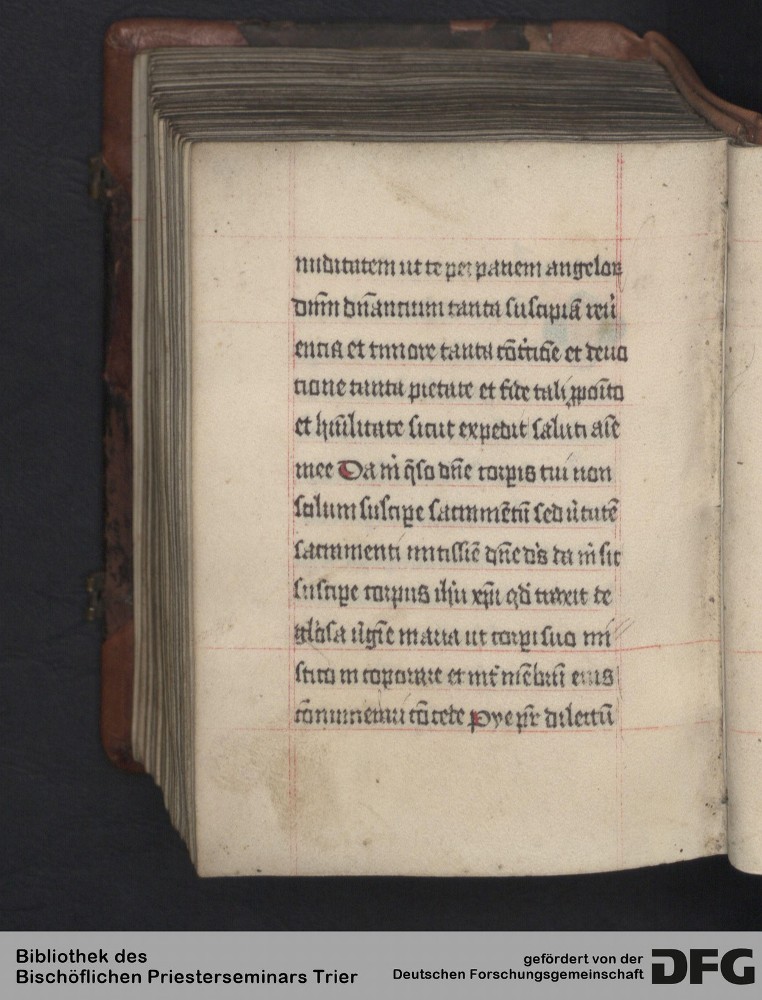 nuditatem ut te per panem angeloꝝ
dnm̄ dn̄antium tanta suscipiā reu̾
entia et timore tanta cōt̾tiōe et deuo
tione tanta pietate et fide tali ꝓpoīto
et hūilitate sicut expedit saluti aīe
mee Da m̄ q̄so dn̄e corpis tui non
solum suscipe sacramētū sed u̾tutē
sacramenti mitissīe dn̄e ds̄ da m̄ sic
suscipe corpus ihū xp̄i qd̄ traxit de
gl̄osa u̾gīe maria ut corpi suo mi
stico in coporare et int̾ mēbra eius
cōnumerari cōcede pye pr̄ dilectū
Bibliothek des
Bischöflichen Priesterseminars Trier
gefördert von der
Deutschen Forschungsgemeinschaft DFG